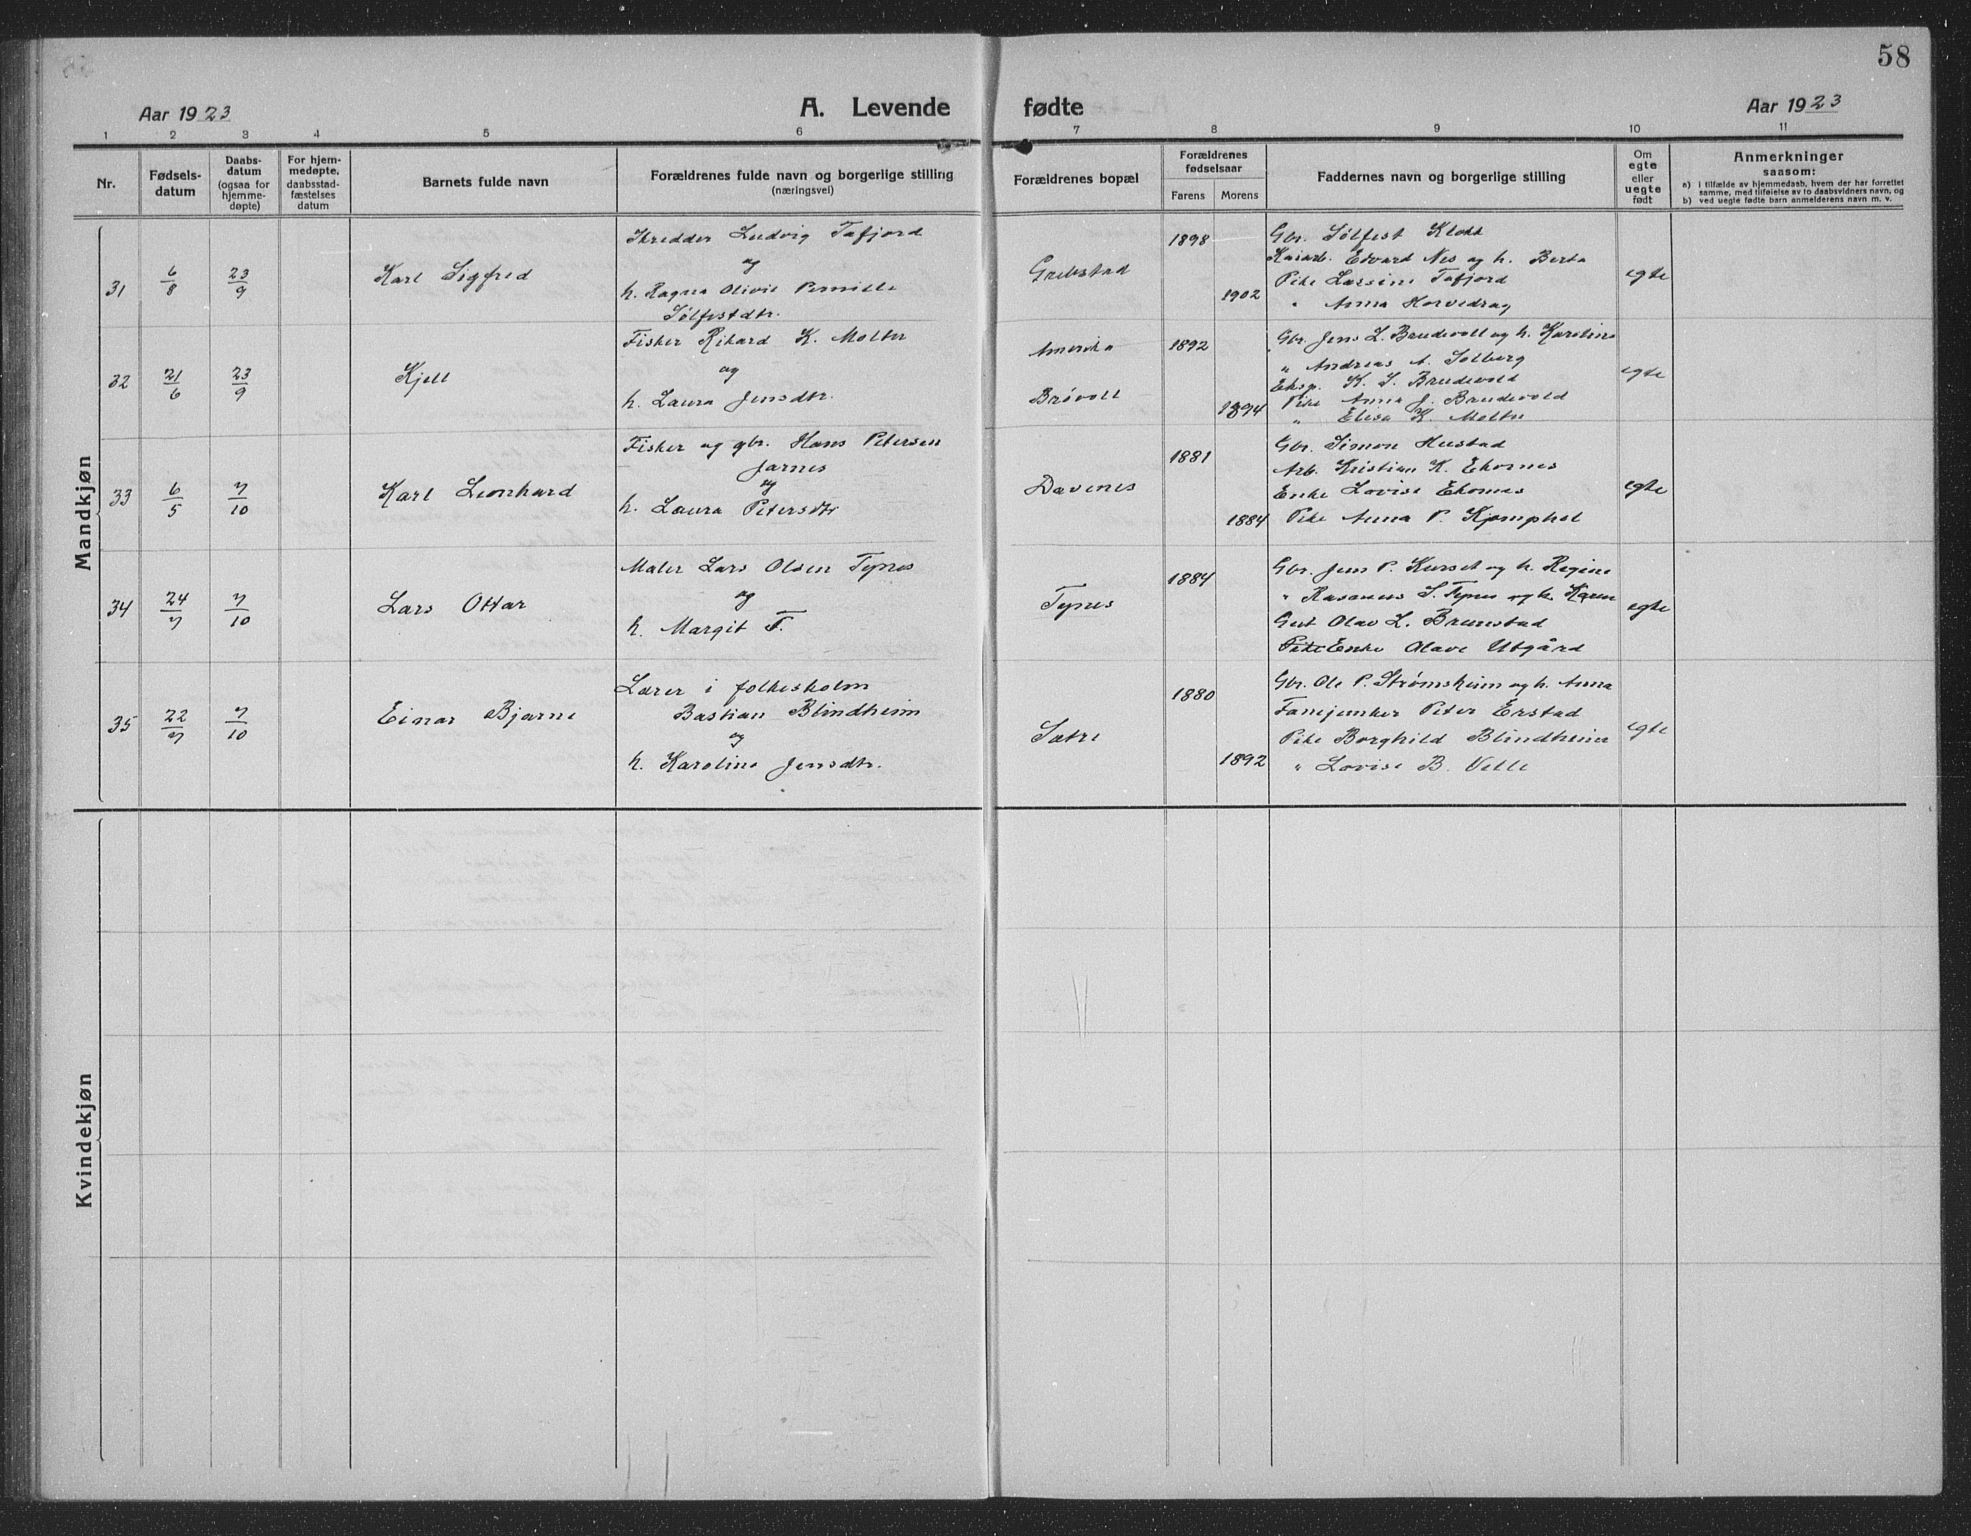 58
Aar 1923 A. Levende fødte Aar 1923
1 2 3 4 5 6 7 8 9 10 11
Nr.
Fødsels-
datum
Daabs-
datum
(ogsaa for
hjemme-
døpte)
For hjem-
medøpte,
daabsstad-
fæstelses
datum
Barnets fulde navn
Forældrenes fulde navn og borgerlige stilling
(næringsvei)
Forældrenes bopæl
Forældrenes
fødselsaar
Farens Morens
Faddernes navn og borgerlige stilling
Om
egte
eller
uegte
født
Anmerkninger
saasom:
a) i tilfælde av hjemmedaab, hvem der har forrettet
samme, med tilføielse av to daabsvidners navn, og
b) ved uegte fødte barn anmelderens navn m. v.
Mandkjøn
31 6/8 23/9 Karl Sigfred
Skredder Ludvig Tafjord
og
h. Ragna Olivie Pernille
Sølfestdtr.
Grebstad
1898
1902
Gbr. Sølfest Klokk
Edvard Nes og h. Berta
Pike Lassine Tafjord
" Anna
egte
32 21/6 23/9 Kjell
Fisker Rikard K. Molter
og
h. Laura Jensdtr.
Amerika
Brøvoll
1892
1894
Gbr. Jens L. Brudevoll og h. Karoline
" Andreas A. Solberg
Eksp. K. J. Brudevold
Pike Anna J. Brudevold
" Elisa K. Molter
egte
33 6/5 7/10 Karl Leonhard
Fisker og gbr. Hans Petersen
Jarnes
og
h. Laura Petersdtr
Davenes
1881
1884
Gbr. Simon Hustad
Arb. Kristian K. Ekornes
Enke Lovise Ekornes
Pike Anna P.
egte
34 24/7 7/10 Lars Ottar
Maler Lars Olsen Tynes
og
h. Margit T.
Tynes
1884
Gbr. Jens P. Kurset og h. Regine
" Rasmus S. Tynes og h. Karen
Gut Olav L. Brunstad
Enke Olave Utgård
egte
35 22/7 7/10 Einar Bjarne
Lærer i folkeskolen
Bastian Blindheim
og
h. Karoline Jensdtr.
Sætre
1880
1892
Gbr. Ole P. Strømsheim og h. Anna
Fanejunker Peter Erstad
Pike Borghild Blindheim
" Lovise B. Velle
egte
Kvindekjøn